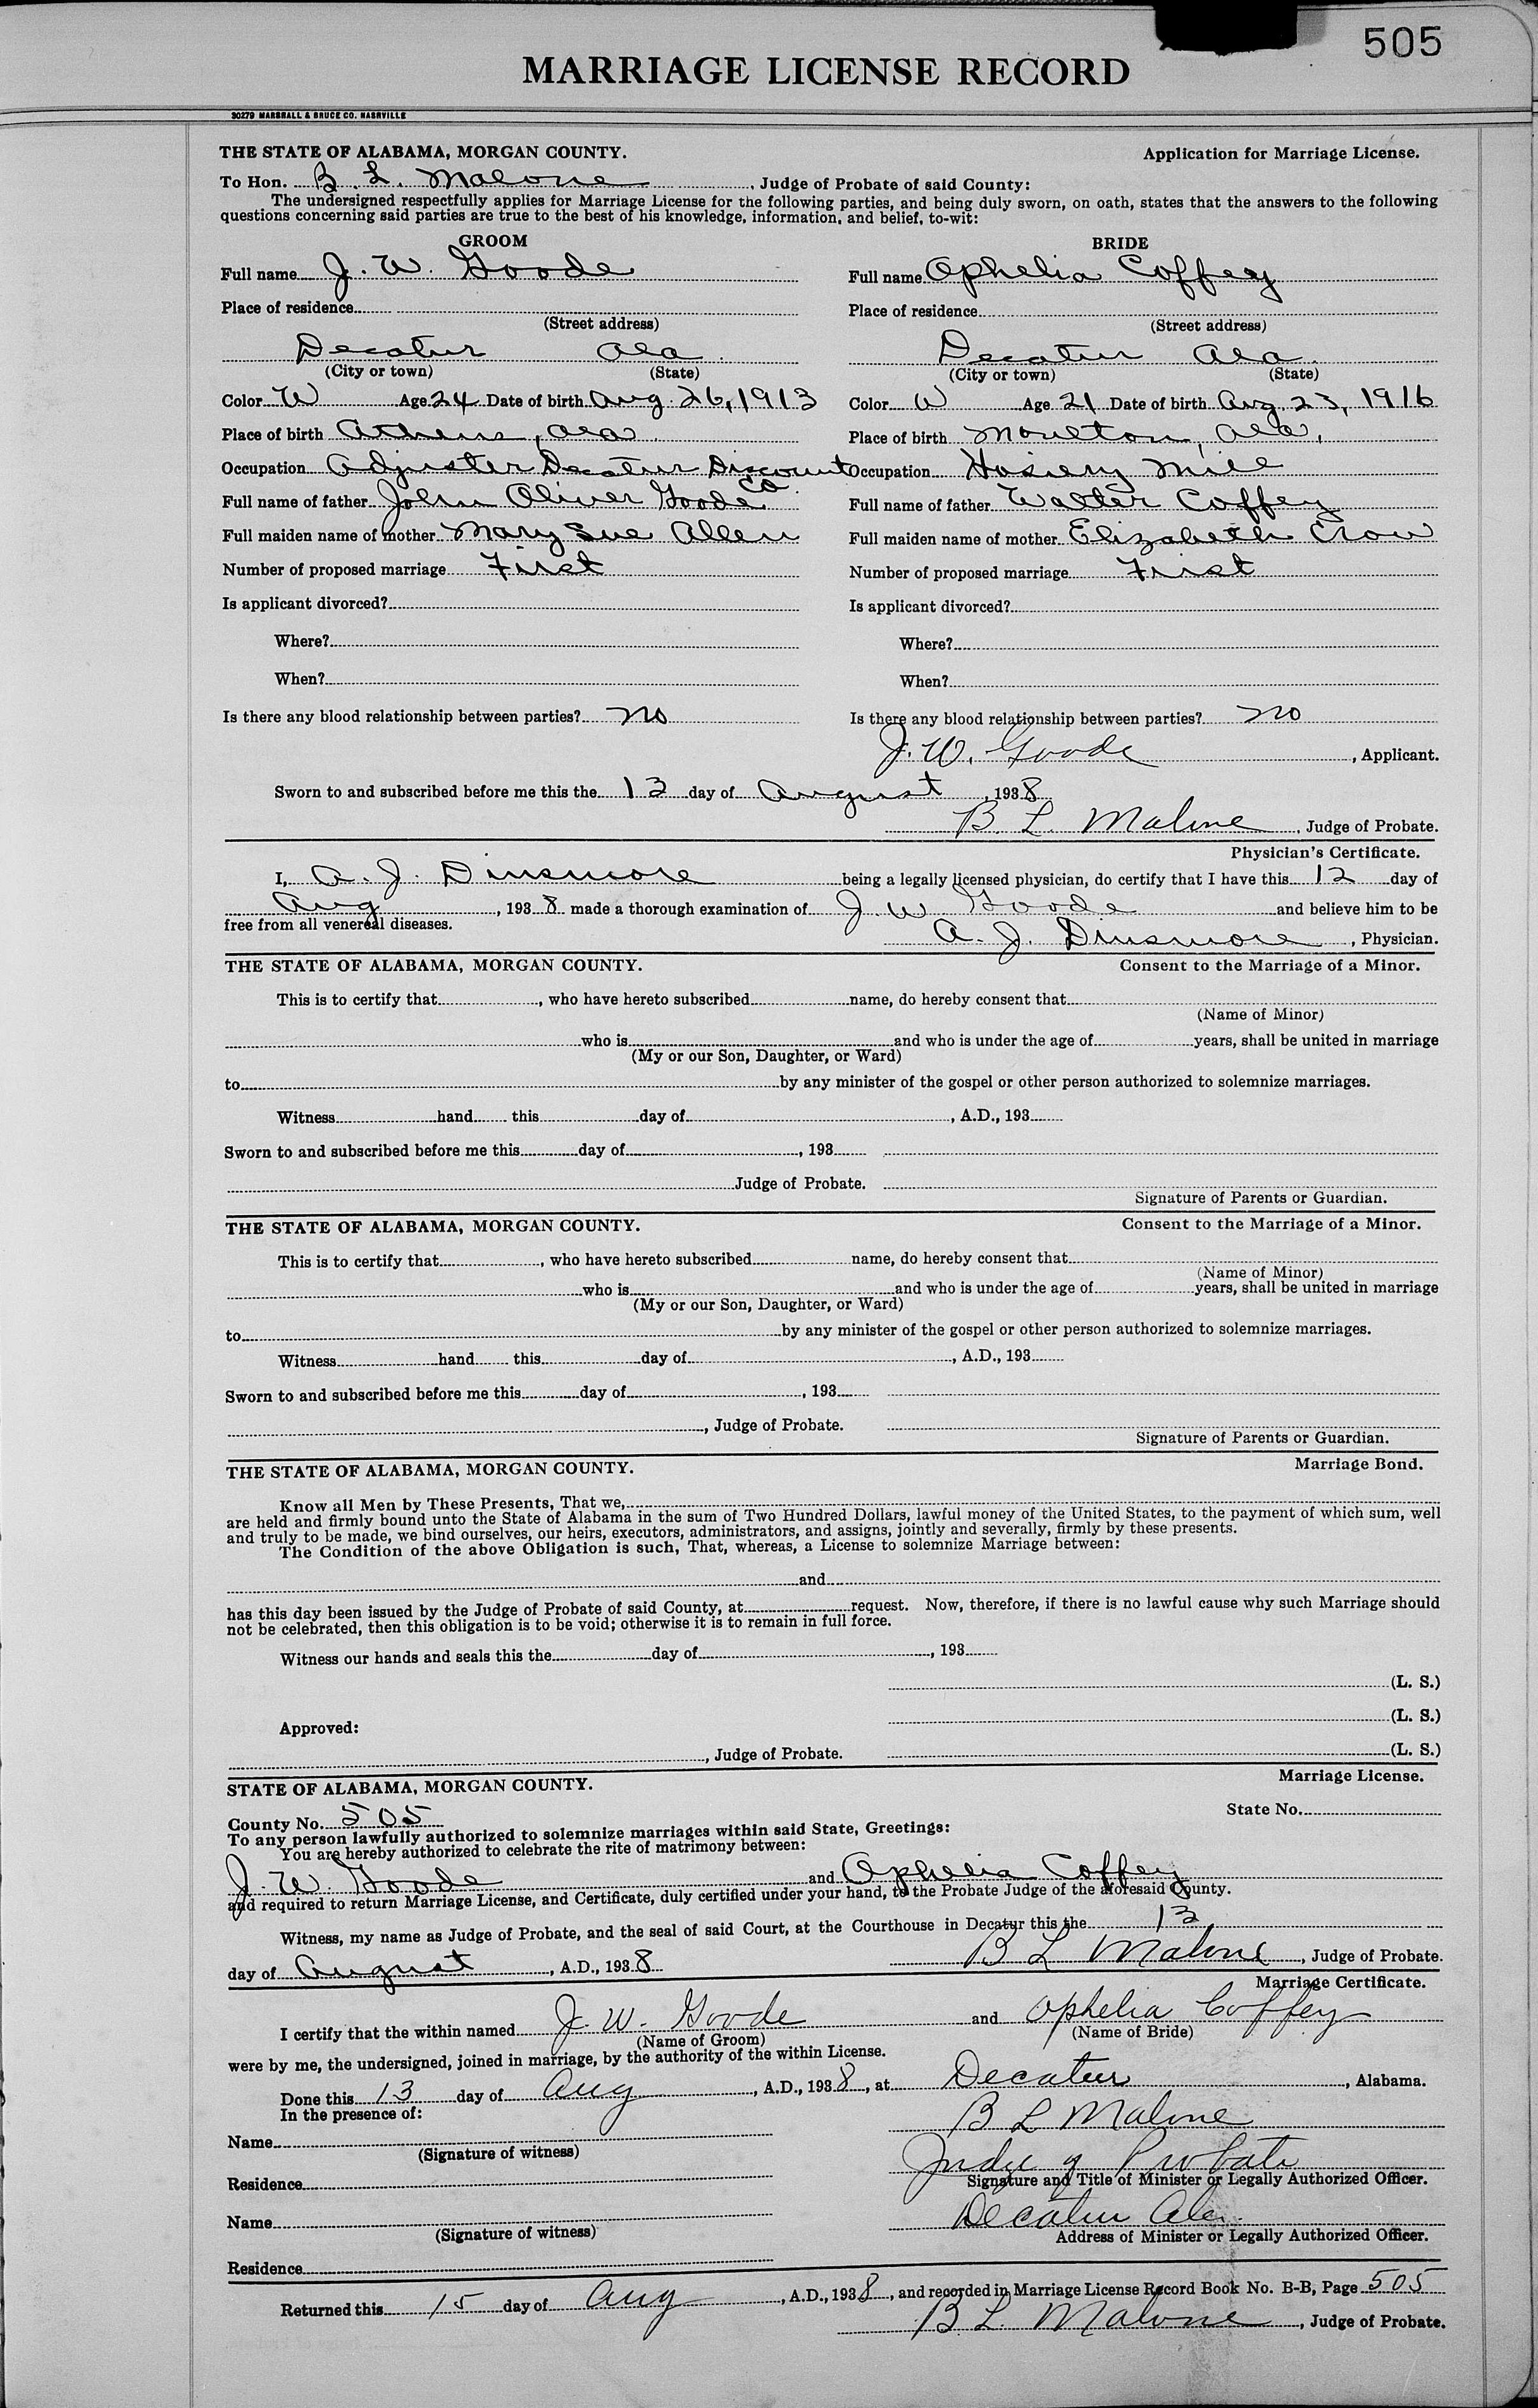 505
MARRIAGE LICENSE RECORD
30279 MARSHALL & BRUCE CO. NASHVILLE
THE STATE OF ALABAMA, MORGAN COUNTY. Application for Marriage License.
To Hon. B. L. Malone, Judge of Probate of said County:
The undersigned respectfully applies for Marriage License for the following parties, and being duly sworn, on oath, states that the answers to the following
questions concerning said parties are true to the best of his knowledge, information, and belief, to-wit:
GROOM BRIDE
Full name J. W. Goode Full name Ophelia Coffey
Place of residence Place of residence
(Street address) (Street address)
Decatur Ala Decatur Ala
(City or town) (State) (City or town) (State)
Color W Age 24 Date of birth Aug. 26, 1913 Color W Age 21 Date of birth Aug. 23, 1916
Place of birth Athens, Ala. Place of birth Moulton, Ala.
Occupation Adjuster Decatur Discount Co. Occupation Hosiery Mill
Full name of father John Oliver Goode Full name of father Walter Coffey
Full maiden name of mother Mary Sue Allen Full maiden name of mother Elizabeth Crow
Number of proposed marriage First Number of proposed marriage First
Is applicant divorced? Is applicant divorced?
Where? Where?
When? When?
Is there any blood relationship between parties? No Is there any blood relationship between parties? No
J. W. Goode, Applicant.
Sworn to and subscribed before me this the 13 day of August, 1938
B. L. Malone, Judge of Probate.
Physician's Certificate.
I, A. J. Dinsmore being a legally licensed physician, do certify that I have this 12 day of
Aug, 1938 made a thorough examination of J. W. Goode and believe him to be
free from all venereal diseases.
A. J. Dinsmore, Physician.
THE STATE OF ALABAMA, MORGAN COUNTY. Consent to the Marriage of a Minor.
This is to certify that, who have hereto subscribed name, do hereby consent that
(Name of Minor)
who is and who is under the age of years, shall be united in marriage
(My or our Son, Daughter, or Ward)
to by any minister of the gospel or other person authorized to solemnize marriages.
Witness hand this day of, A.D., 193
Sworn to and subscribed before me this day of, 193
Judge of Probate.
Signature of Parents or Guardian.
THE STATE OF ALABAMA, MORGAN COUNTY. Consent to the Marriage of a Minor.
This is to certify that, who have hereto subscribed name, do hereby consent that
(Name of Minor)
who is and who is under the age of years, shall be united in marriage
(My or our Son, Daughter, or Ward)
to by any minister of the gospel or other person authorized to solemnize marriages.
Witness hand this day of, A.D., 193
Sworn to and subscribed before me this day of, 193
, Judge of Probate.
Signature of Parents or Guardian.
THE STATE OF ALABAMA, MORGAN COUNTY. Marriage Bond.
Know all Men by These Presents, That we,
are held and firmly bound unto the State of Alabama in the sum of Two Hundred Dollars, lawful money of the United States, to the payment of which sum, well
and truly to be made, we bind ourselves, our heirs, executors, administrators, and assigns, jointly and severally, firmly by these presents.
The Condition of the above Obligation is such, That, whereas, a License to solemnize Marriage between:
and
has this day been issued by the Judge of Probate of said County, at request. Now, therefore, if there is no lawful cause why such Marriage should
not be celebrated, then this obligation is to be void; otherwise it is to remain in full force.
Witness our hands and seals this the day of, 193
(L. S.)
(L. S.)
Approved:
, Judge of Probate. (L. S.)
STATE OF ALABAMA, MORGAN COUNTY. Marriage License.
County No. 505 State No.
To any person lawfully authorized to solemnize marriages within said State, Greetings:
You are hereby authorized to celebrate the rite of matrimony between:
J. W. Goode and Ophelia Coffey
and required to return Marriage License, and Certificate, duly certified under your hand, to the Probate Judge of the aforesaid County.
Witness, my name as Judge of Probate, and the seal of said Court, at the Courthouse in Decatur this the 13
day of August, A.D., 1938 B L Malone, Judge of Probate.
Marriage Certificate.
I certify that the within named J. W. Goode and Ophelia Coffey
(Name of Groom) (Name of Bride)
were by me, the undersigned, joined in marriage, by the authority of the within License.
Done this 13 day of Aug, A.D., 1938, at Decatur, Alabama.
In the presence of:
B L Malone
Name
(Signature of witness)
Judge of Probate
Residence Signature and Title of Minister or Legally Authorized Officer.
Name Decatur Ala.
(Signature of witness) Address of Minister or Legally Authorized Officer.
Residence
Returned this 15 day of Aug, A.D., 1938, and recorded in Marriage License Record Book No. B-B, Page 505
B. L. Malone, Judge of Probate.